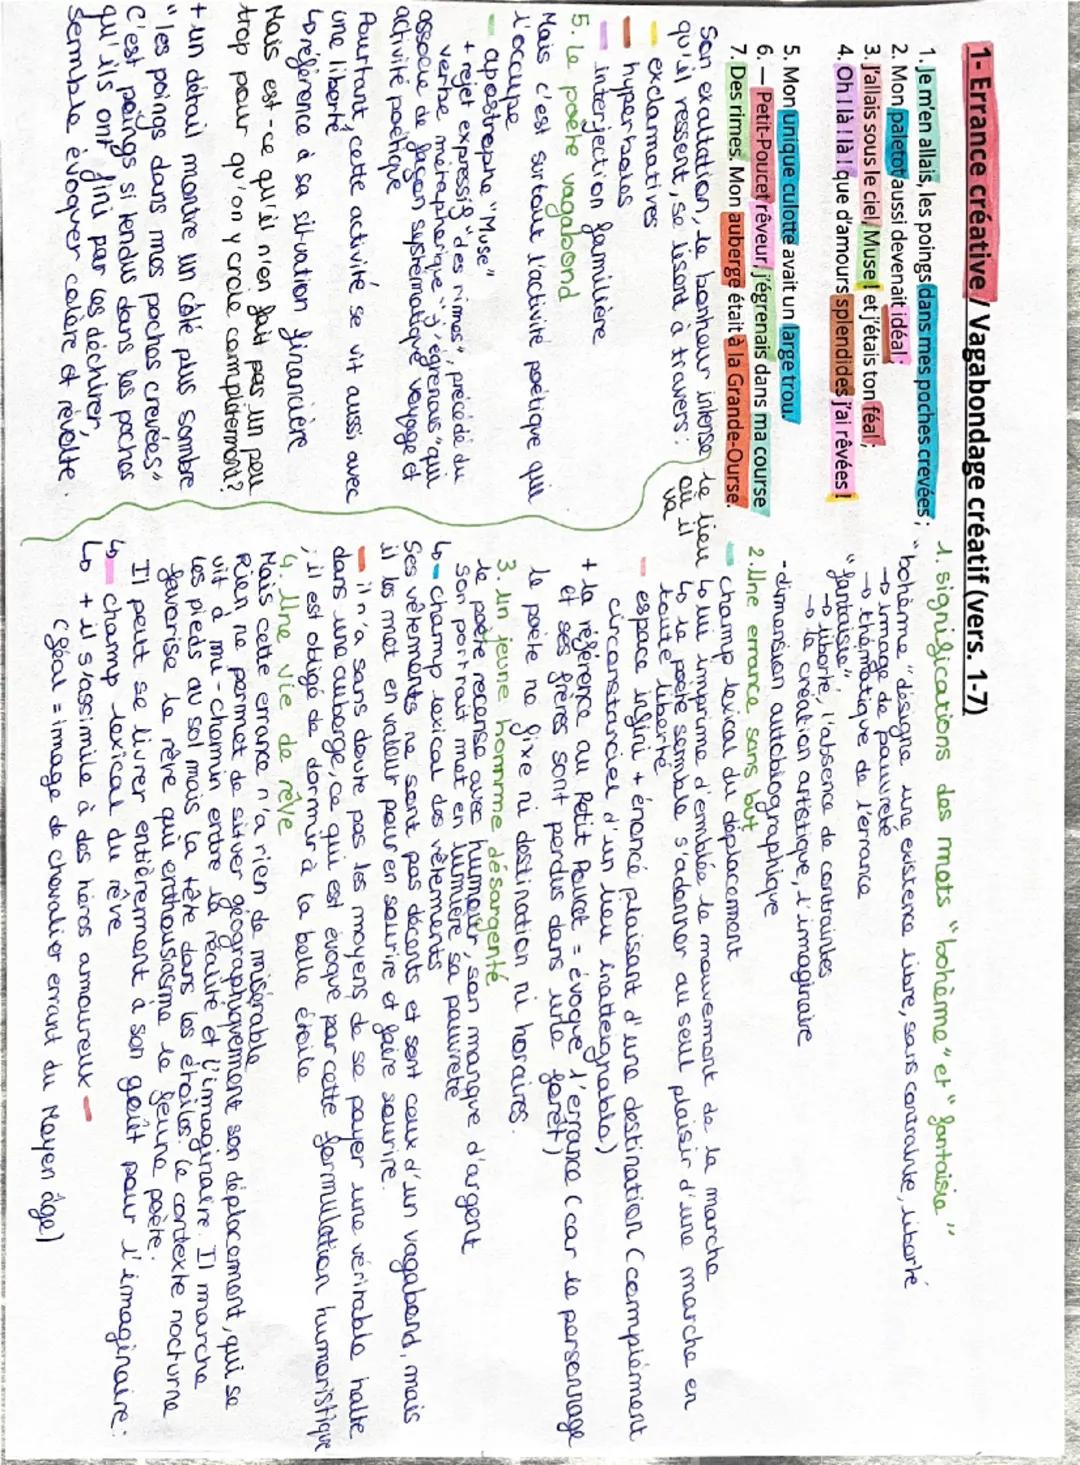 1- Errance créative / Vagabondage créatif (vers. 1-7)
1. Je m'en allais, les poings dans mes poches crevées ;
2. Mon paletot aussi devenait idéal ;
3. J'allais sous le ciel, Muse ! et j'étais ton féal ;
4. Oh ! là ! là ! que d'amours splendides j'ai rêvées !
5. Mon unique culotte avait un large trou.
6. – Petit-Poucet rêveur, j'égrenais dans ma course
7. Des rimes. Mon auberge était à la Grande-Ourse.
Son exaltation, le bonheur intense
qu'il ressent, se lisent à travers :
le lieu
où il
va
exclamatives
hyperboles
interjection familière
5. Le poète vagabond
Mais c'est surtout l'activité poétique qui
l'occupe
apostrophe "Muse"
+ rejet expressif "des rimes", précédé du
verbe métaphorique "j'égrenais" qui
associe de façon systématique voyage et
activité poétique
Pourtant, cette activité se vit aussi avec
une liberté
↳ référence à sa situation financière
Mais est-ce qu'il n'en fait pas un peu
trop pour qu'on y croie complètement?
+ un détail montre un côté plus sombre
"les poings dans mes poches crevées"
C'est poings si tendus dans les poches
qu'ils ont fini par les déchirer,
semble évoquer colère et révolte.
1. significations des mots "bohème" et "fantaisie"
"bohème" désigne une existence libre, sans contrainte, liberté
→ image de pauvreté
→ thématique de l'errance
"fantaisie",
→ liberté, l'absence de contraintes
→ la création artistique, l'imaginaire
- dimension autobiographique
2. Une errance sans but
champ lexical du déplacement
↳ lui imprime d'emblée le mouvement de la marche
↳ le poète semble s'adonner au seul plaisir d'une marche en
toute liberté
espace infini + énoncé plaisant d'une destination (complément
circonstanciel d'un lieu inatteignable)
+ la référence au Petit Poucet = évoque l'errance (car le personnage
et ses frères sont perdus dans une forêt)
le poète ne fixe ni destination ni horaires.
3. un jeune homme désargenté
le poète recense avec humour, son manque d'argent
son portrait met en lumière sa pauvreté
↳ champ lexical des vêtements
Ses vêtements ne sont pas décents et sont ceux d'un vagabond, mais
il les met en valeur pour en sourire et faire sourire.
il n'a sans doute pas les moyens de se payer une véritable halte
dans une auberge, ce qui est évoqué par cette formulation humoristique
, il est obligé de dormir à la belle étoile
4. Une vie de rêve
Mais cette errance n'a rien de misérable
Rien ne permet de situer géographiquement son déplacement, qui se
vit à mi-chemin entre la réalité et l'imaginaire. Il marche
les pieds au sol mais la tête dans les étoiles. Le contexte nocturne
favorise le rêve qui enthousiasme le jeune poète.
Il peut se livrer entièrement à son goût pour l'imaginaire.
↳ champ lexical du rêve
↳ + il s'assimile à des héros amoureux
(féal = image de chevalier errant du Moyen âge)